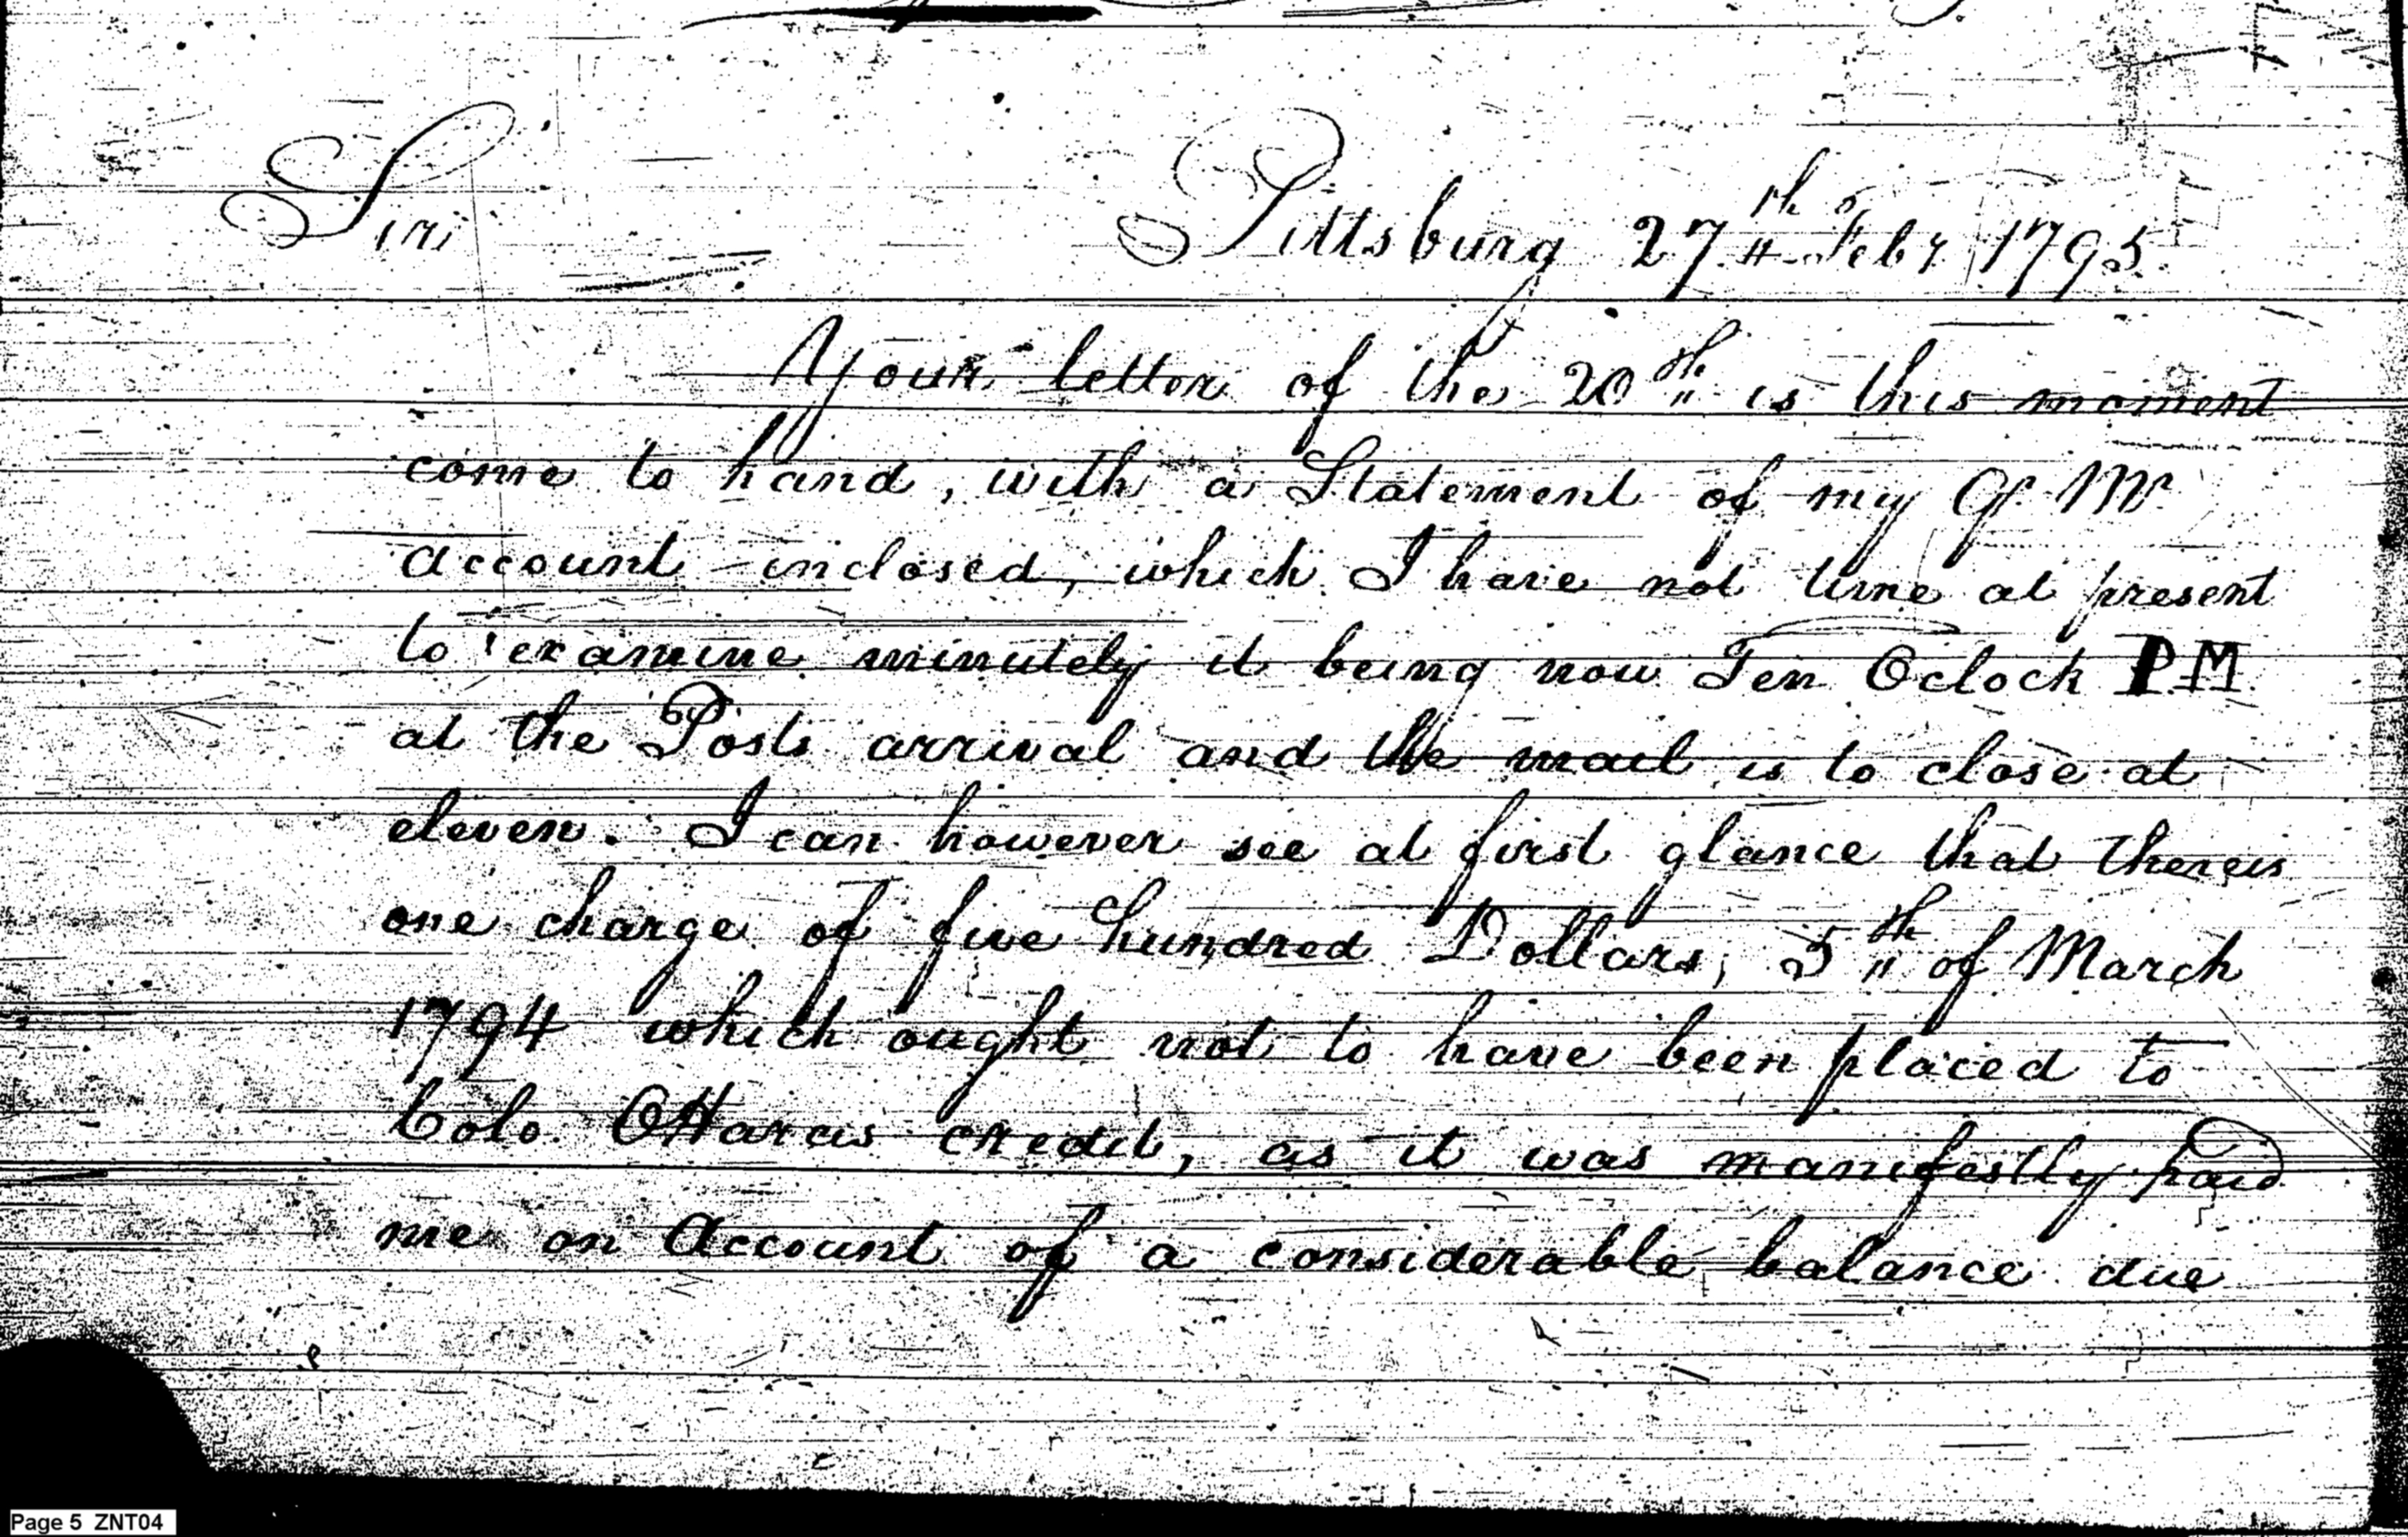 Sir
Pittsburg 27th Feby 1795
Your letter of the 20th is this moment
come to hand, with a Statement of my Qr Mr
Account inclosed, which I have not time at present
to examine minutely it being now Ten Oclock P.M.
at the Posts arrival and the mail is to close at
eleven. I can however see at first glance that there is
one charge of five hundred Dollars, 5th of March
1794 which ought not to have been placed to
Colo. OHaras credit, as it was manifestly paid
me on Account of a considerable balance due
Page 5 ZNT04